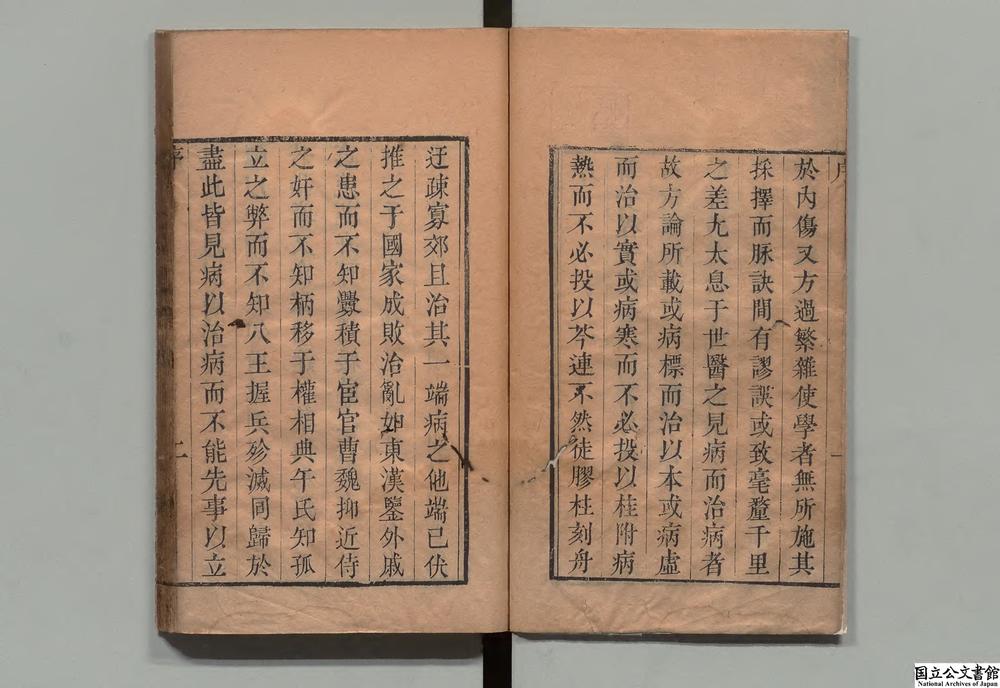 序
一
於內傷又方過繁雜使學者無所施其
採擇而脈訣間有謬誤或致毫釐千里
之差尤太息于世醫之見病而治病者
故方論所載或病標而治以本或病虛
而治以實或病寒而不必投以桂附病
熱而不必投以芩連不然徒膠柱刻舟
迂疎寡効且治其一端病之他端已伏
推之于國家成敗治亂如東漢鑒外戚
之患而不知釁積于宦官曹魏抑近侍
之奸而不知柄移于權相典午氏知孤
立之弊而不知八王握兵殄滅同歸於
盡此皆見病以治病而不能先事以立
序
二
国立公文書館
National Archives of Japan